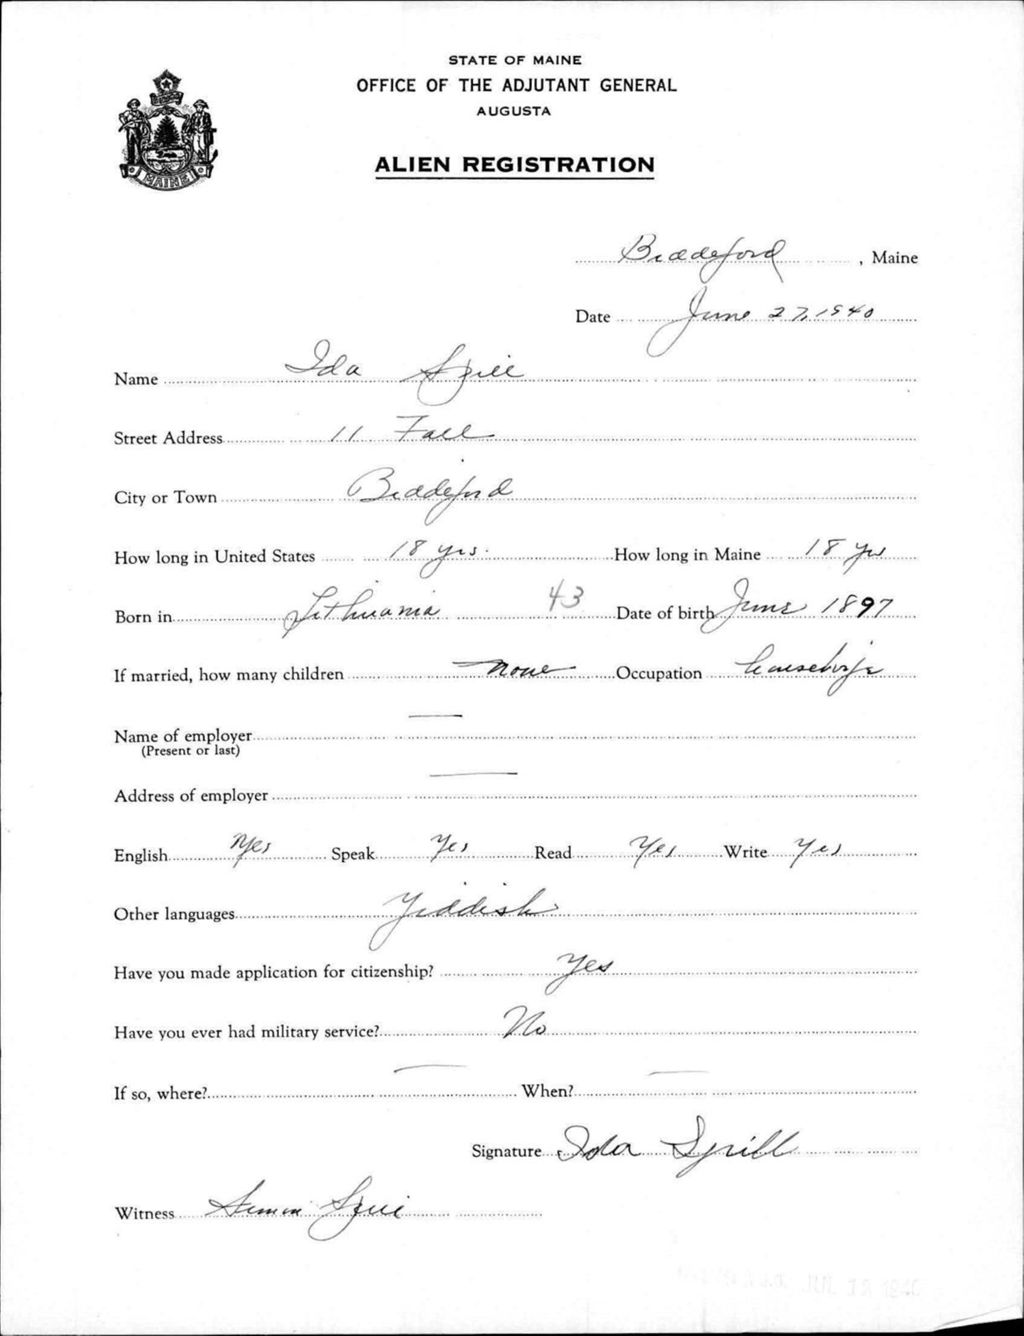 STATE OF MAINE
OFFICE OF THE ADJUTANT GENERAL
AUGUSTA
ALIEN REGISTRATION
MAINE
Biddeford, Maine
Date June 27, 1940
Name Ida Spill
Street Address 11 Fall
City or Town Biddeford
How long in United States 18 yrs. How long in Maine 18 yrs
Born in Lithuania 43 Date of birth June 1897
If married, how many children none Occupation housewife
Name of employer
(Present or last)
Address of employer
English Yes Speak Yes Read Yes Write Yes
Other languages Yiddish
Have you made application for citizenship? Yes
Have you ever had military service? No
If so, where? When?
Signature Ida Spill
Witness